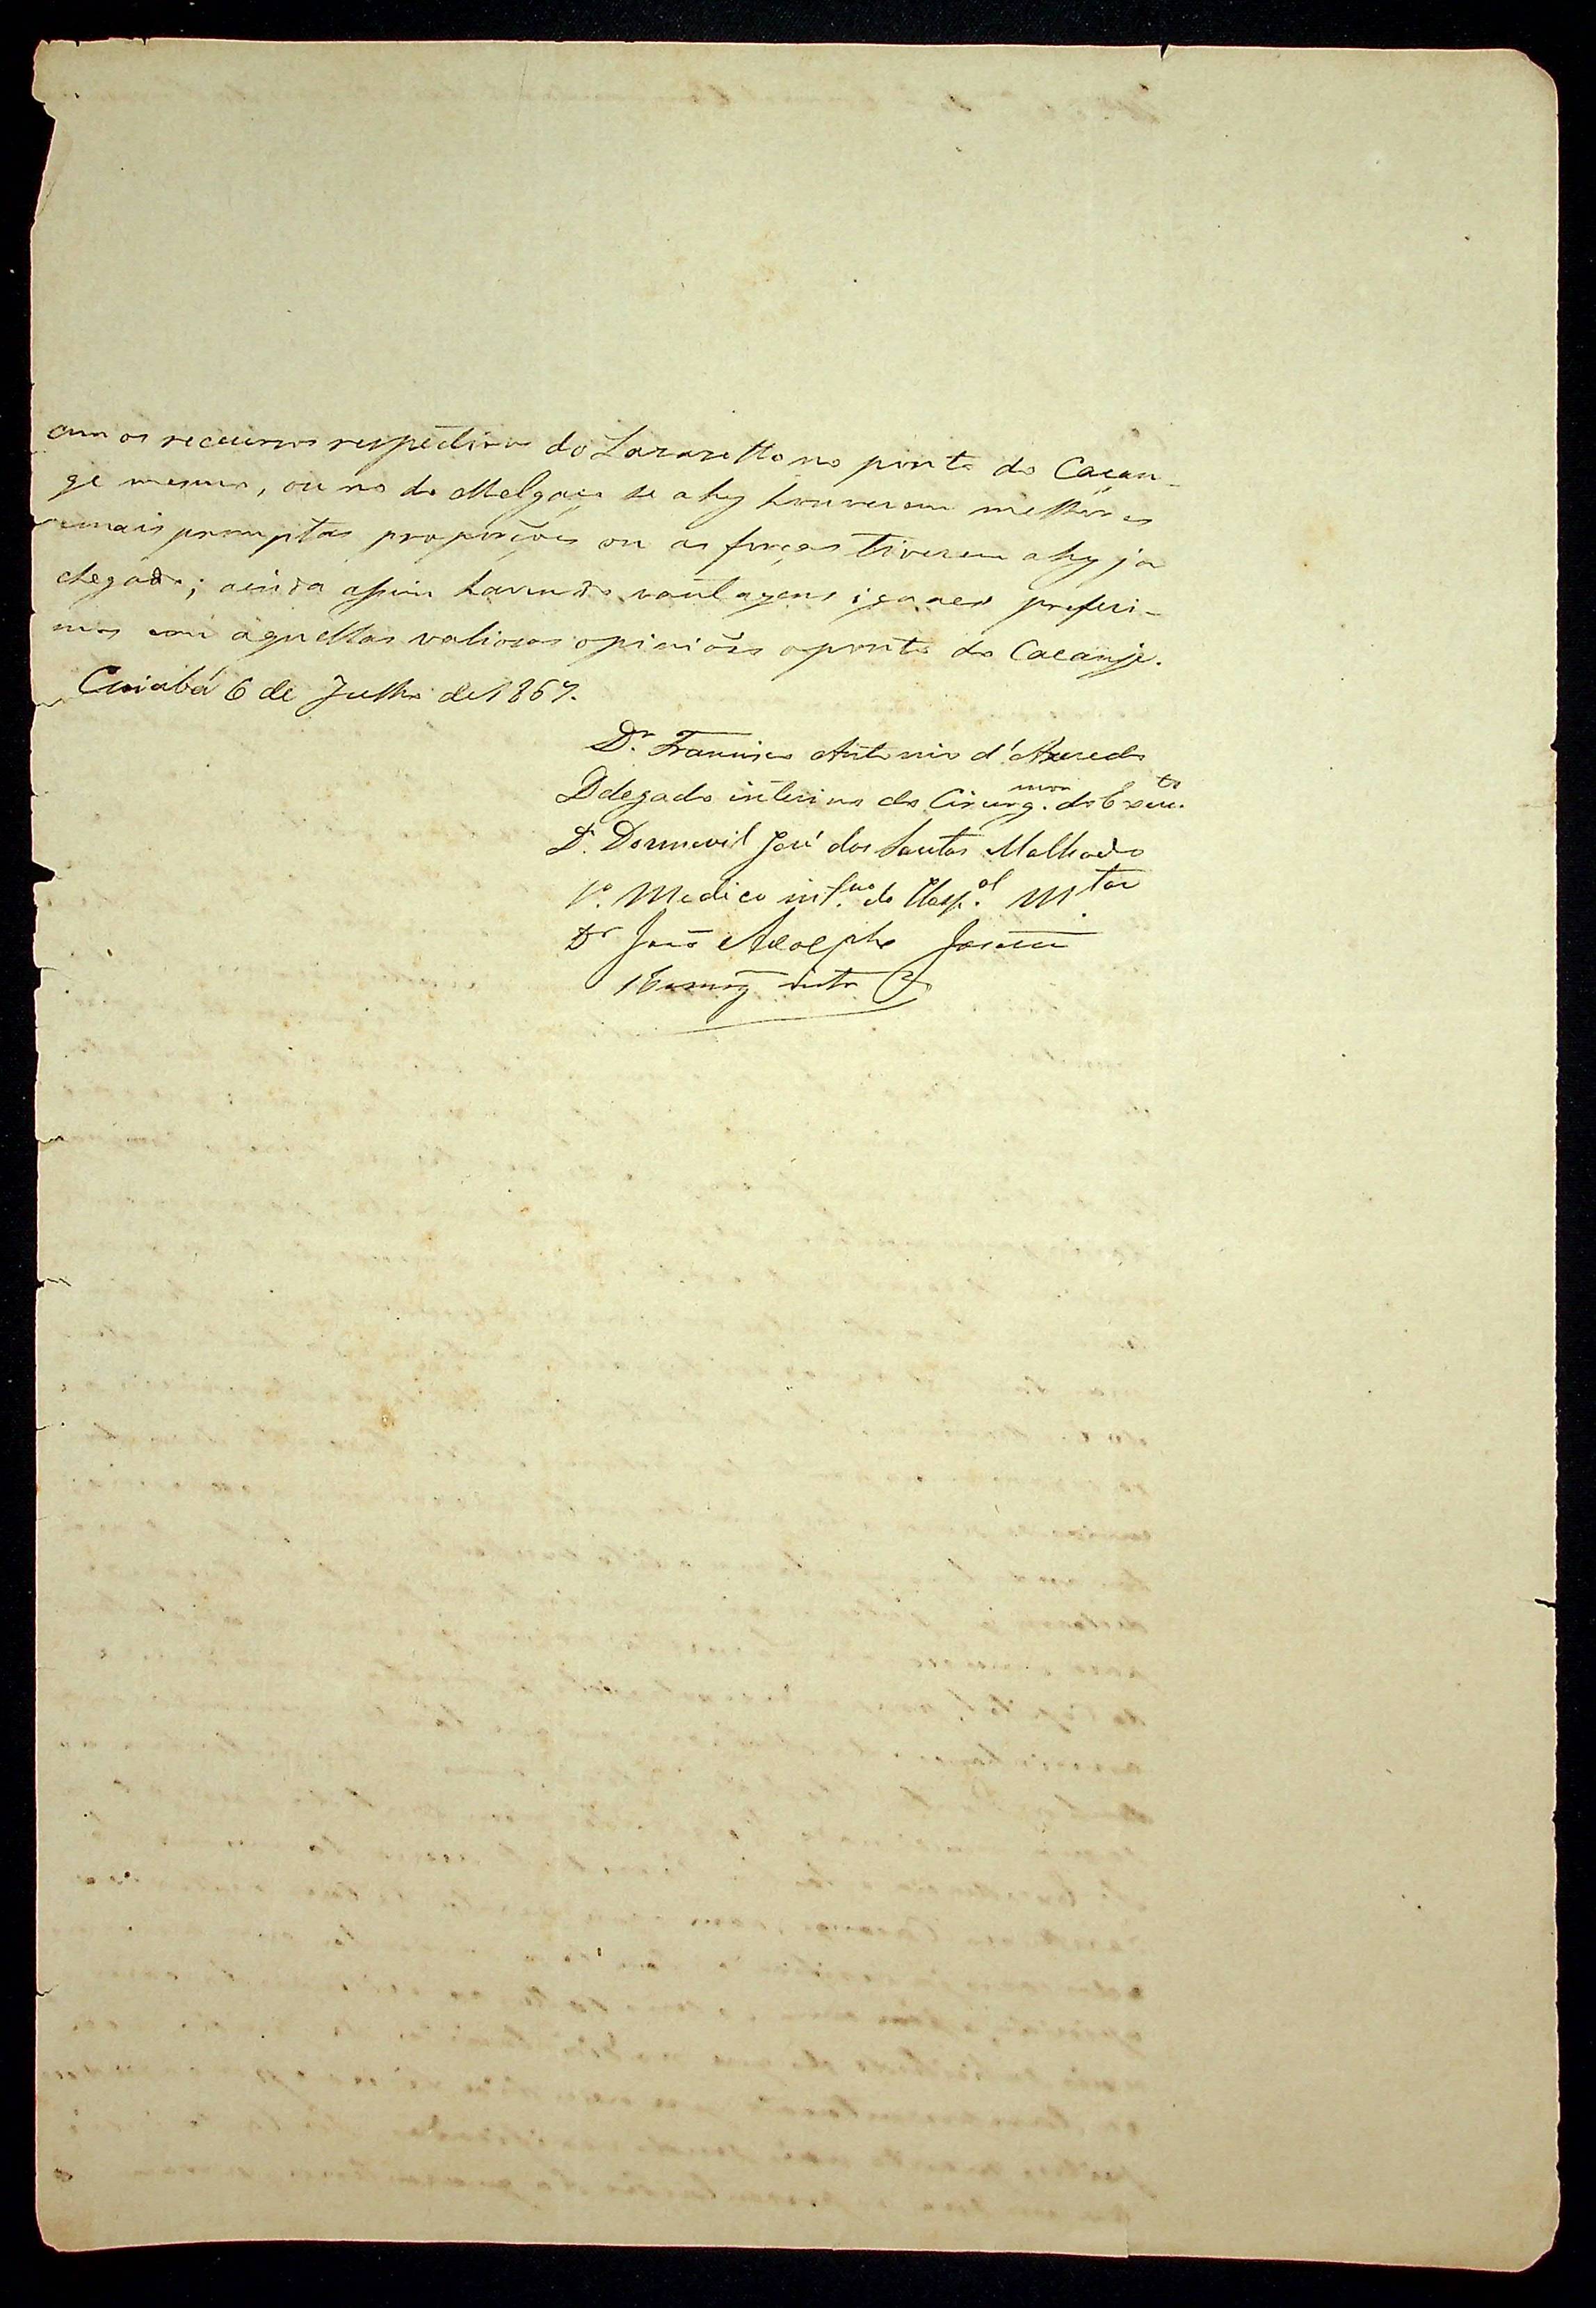 com os recursos respectivos do Lazaretto no ponto do Cacan-
ge mesmo, ou no do Melgaço se ahy houverem melhores
e mais promptas proporções ou as forças tiverem ahy já
chegado; ainda assim havendo vantagens iguaes preferi-
mos com aquellas valiosas opiniões o ponto do Cacanje.
Cuiabá 6 de Julho de 1867.
Dr. Francisco Antonio d'Azeredo
Delegado interino do Cirurg. mor do Exer.to
Dr. Dormevil José dos Santos Malhado
1º Medico int.no do Hosp.al M.tar
Dr João Adolpho Josetti